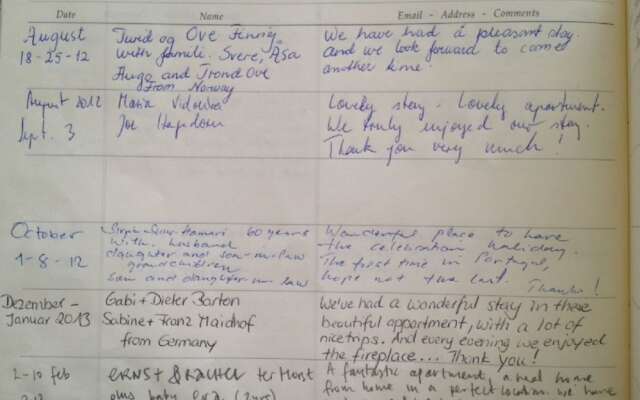 Date Name Email - Address - Comments
August
18-25-12
Turid og Ove
with famili. Sverre, Åsa
Hugo and Trond Ove
From Norway
We have had a pleasant stay.
and we look forward to come
another time.
August 2012
Sept. 3
Maria
Joe
Lovely stay - Lovely apartment.
We truly enjoyed our stay.
Thank you very much!
October
1-8-12
60 years
with husband
daughter and son-in-law
grandchildren
son and daughter in law
Wonderful place to have
the celebration holiday.
The first time in Portugal,
hope not the last. Thanks!
Dezember -
Januar 2013
Gabi + Dieter Barton
Sabine + Franz Maidhof
from Germany
We've had a wonderful stay in these
beautiful appartment, with a lot of
nice trips. And every evening we enjoyed
the fireplace... Thank you!
2-10 feb
ERNST & RACHEL ter Horst
plus baby
A fantastic apartment, a real home
from home in a perfect location. We have